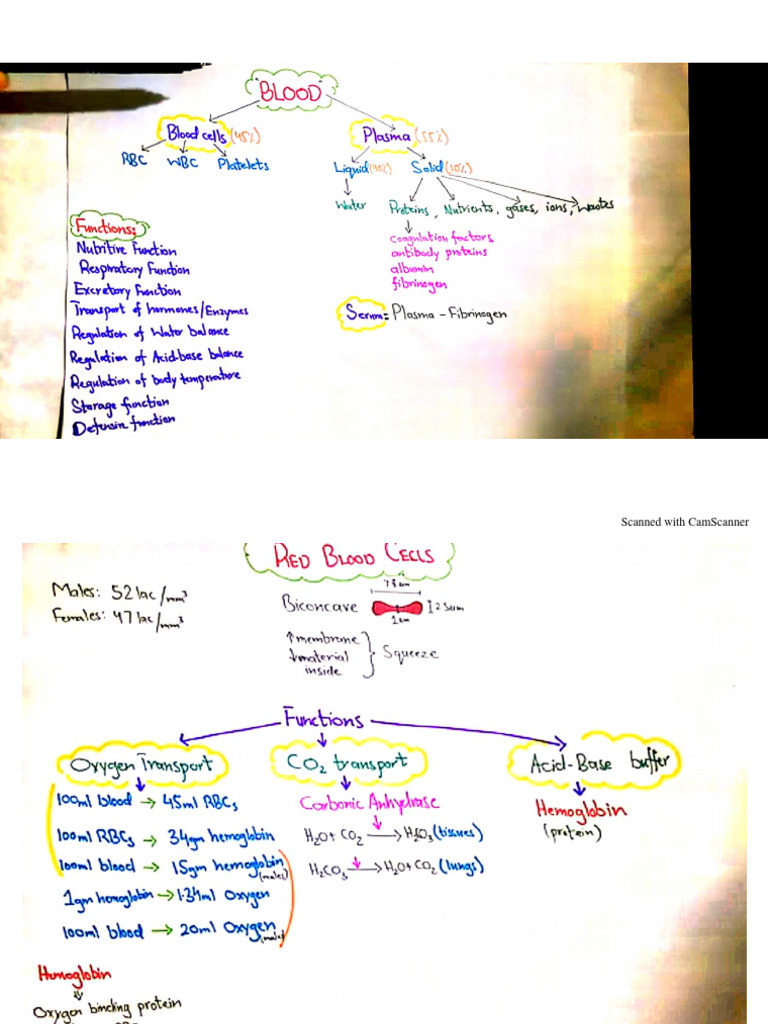 "BLOOD"
Blood cells (45%)
Plasma (55%)
RBC WBC Platelets
Liquid (90%) Solid (10%)
Water
Proteins, Nutrients, gases, ions, Wastes
coagulation factors
antibody proteins
albumin
fibrinogen
Serum: Plasma - Fibrinogen
Functions:
Nutritive Function
Respiratory Function
Excretory Function
Transport of hormones/Enzymes
Regulation of Water balance
Regulation of Acid-base balance
Regulation of body temperature
Storage function
Defensive function
Scanned with CamScanner
RED BLOOD CELLS
Males: 52 lac/mm³
Females: 47 lac/mm³
7.8 um
Biconcave
2.5um
1um
↑membrane
↓material
inside
} Squeeze
Functions
Oxygen Transport
100ml blood → 45ml RBCs
100ml RBCs → 34gm hemoglobin
100ml blood → 15gm hemoglobin
(males)
1gm hemoglobin → 1.34ml Oxygen
100ml blood → 20ml Oxygen
(male)
CO₂ transport
Carbonic Anhydrase
H₂O + CO₂ → H₂CO₃ (tissues)
H₂CO₃ → H₂O + CO₂ (lungs)
Acid-Base buffer
Hemoglobin
(protein)
Hemoglobin
Oxygen binding protein